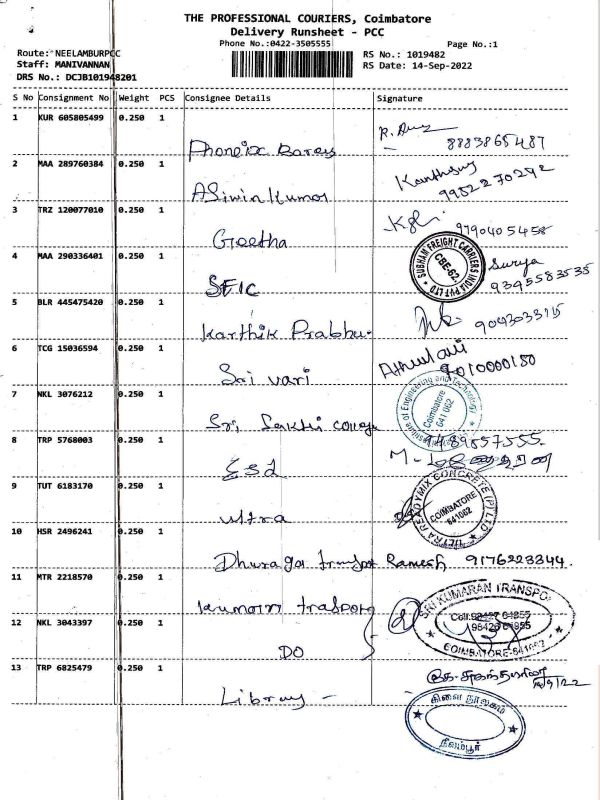 THE PROFESSIONAL COURIERS, Coimbatore
Delivery Runsheet - PCC
Phone No.:0422-3505555
Page No.:1
Route: NEELAMBURPCC
RS No.: 1019482
Staff: MANIVANNAN
RS Date: 14-Sep-2022
DRS No.: DCJB101948201
S No Consignment No Weight PCS Consignee Details Signature
1 KUR 605805499 0.250 1
Phoneix Bares R. 8883865487
2 MAA 289760384 0.250 1
ASiwin Kumar 9952270292
3 TRZ 120077010 0.250 1
Geetha 9790405458
4 MAA 290336401 0.250 1
SFIC Surya
SUBHAM FREIGHT CARRIERS INDIA PVT LTD
CBE-62
9395583535
5 BLR 445475420 0.250 1
Karthik Prabhu.
6 TCG 15036594 0.250 1
Sri vari 9010000180
7 NKL 3076212 0.250 1
Sri Sakthi College
Institute of Engineering and Technology
Coimbatore
641 062
8 TRP 5768003 0.250 1
9489557555
ESI M-
9 TUT 6183170 0.250 1
ultra
ULTRA READYMIX CONCRETE (P) LTD
COIMBATORE
641062
10 HSR 2496241 0.250 1
Dhuraga transport Ramesh 9176223344.
11 MTR 2218570 0.250 1
kumaran transport
SRI KUMARAN TRANSPO
12 NKL 3043397 0.250 1
Cell:
COIMBATORE-641062
DO
13 TRP 6825479 0.250 1
Library -
கிளை நூலகம்
நீலம்பூர்